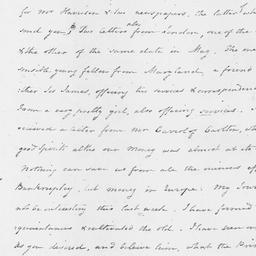 for Mr Harrison & two newspapers. The latter
send you two letters also from London, one of the
& the other of the same date in May. The one
sensible young fellow from Maryland, a friend
ther Sir James, offering his services & correspondence
from a very pretty girl, also offering services.
ceived a letter from Mr Carrol of Carlton, wh
good spirits altho our money was almost at its
Nothing can save us from all the miseries of
Bankruptcy, but money in Europe. My
not be interesting this last week. I have formed
quaintances & cultivated the old. I have seen
as you desired, and believe him, what the